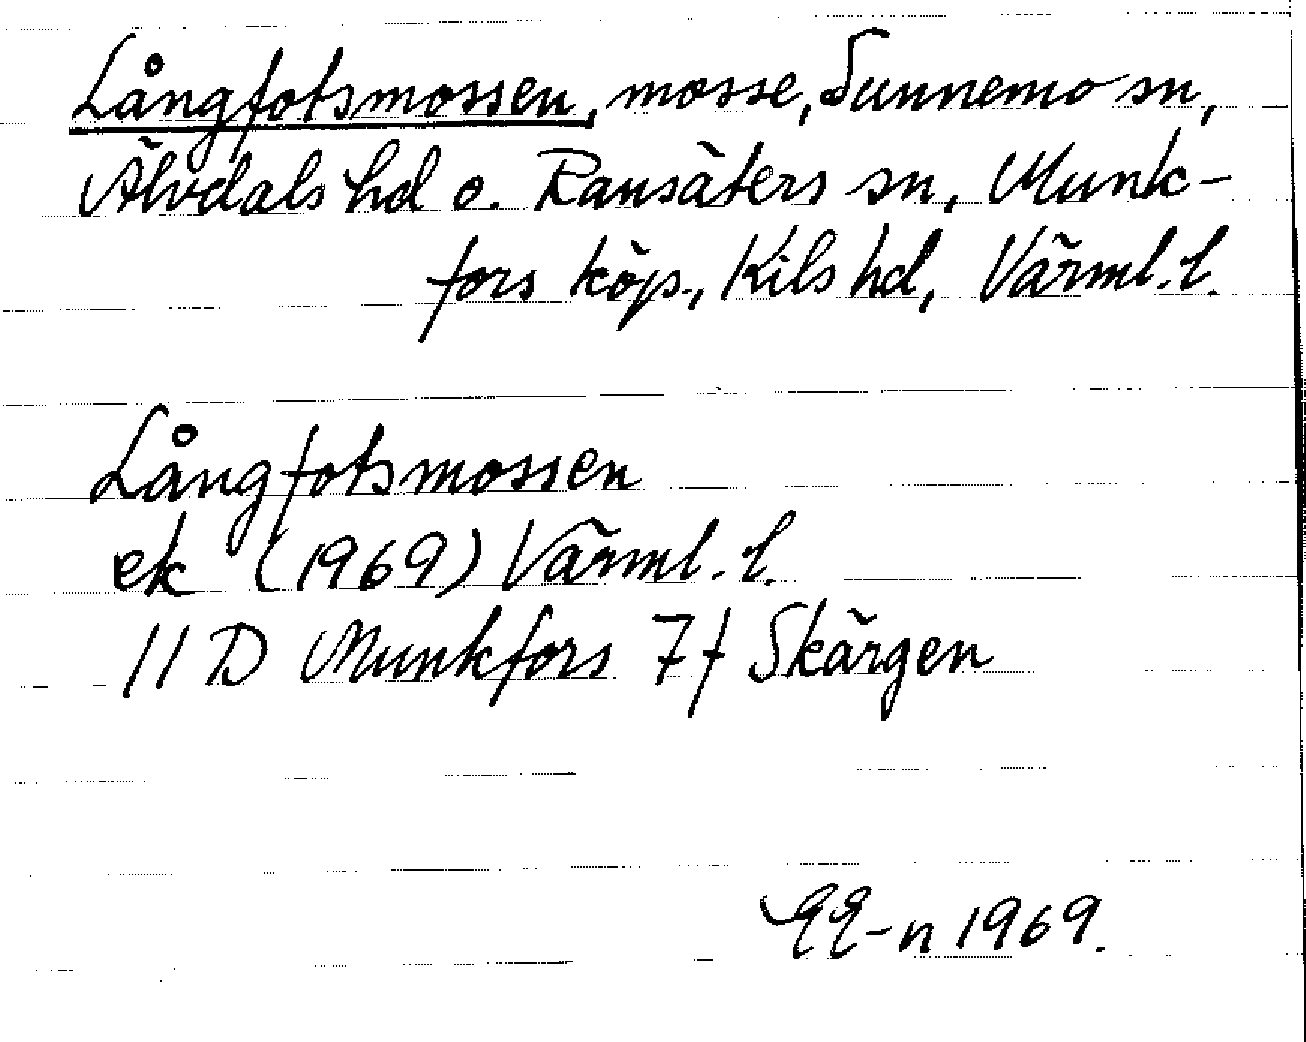 Långfotsmossen, mosse, Sunnemo sn,
Älvdals hd o. Ransäters sn, Munk-
fors köp., Kils hd, Värml. l.
Långfotsmossen
ek (1969) Värml. l.
11 D Munkfors 7f Skärgen
1969.